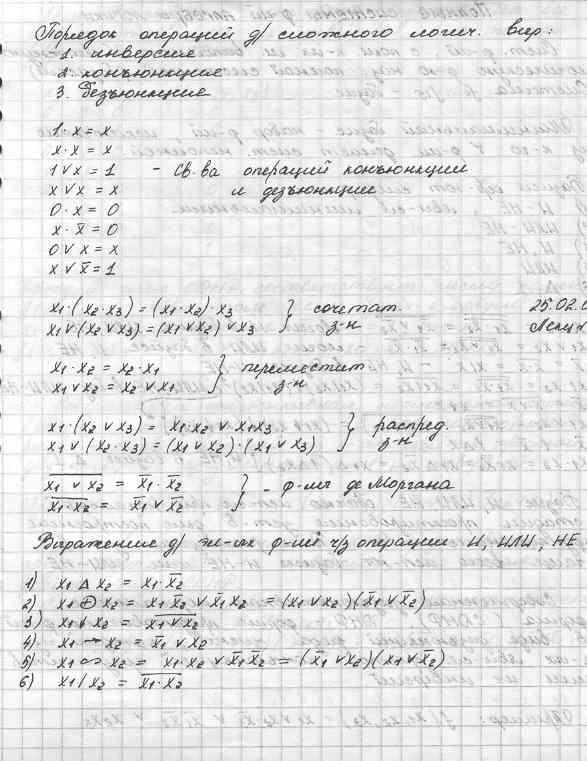 Порядок операций д/ сложного логич. выр:
1. инверсия
2. конъюнкция
3. дезъюнкция
1·x = x
x·x = x
1 ∨ x = 1 – св-ва операций конъюнкции
x ∨ x = x и дезъюнкции
0·x = 0
x·x̄ = 0
0 ∨ x = x
x ∨ x̄ = 1
x1·(x2·x3) = (x1·x2)·x3 } сочетат. 25.02.
x1 ∨ (x2 ∨ x3) = (x1 ∨ x2) ∨ x3 з-н
x1·x2 = x2·x1 } переместит.
x1 ∨ x2 = x2 ∨ x1 з-н
x1·(x2 ∨ x3) = x1·x2 ∨ x1x3 } распред.
x1 ∨ (x2·x3) = (x1 ∨ x2)·(x1 ∨ x3) з-н
x̅1̅ ̅∨̅ ̅x̅2̅ = x̄1·x̄2 } – ф-лы де Моргана
x̅1̅·̅x̅2̅ = x̄1 ∨ x̄2
Выражение д/ эл-ых ф-ий ч/з операции И, ИЛИ, НЕ
1) x1 Δ x2 = x1·x̄2
2) x1 ⊕ x2 = x1 x̄2 ∨ x̄1 x2 = (x1 ∨ x2)(x̄1 ∨ x̄2)
3) x1 ↓ x2 = x̅1̅ ̅∨̅ ̅x̅2̅
4) x1 → x2 = x̄1 ∨ x2
5) x1 ∞ x2 = x1·x2 ∨ x̄1 x̄2 = (x̄1 ∨ x2)(x1 ∨ x̄2)
6) x1 / x2 = x̅1̅·̅x̅2̅